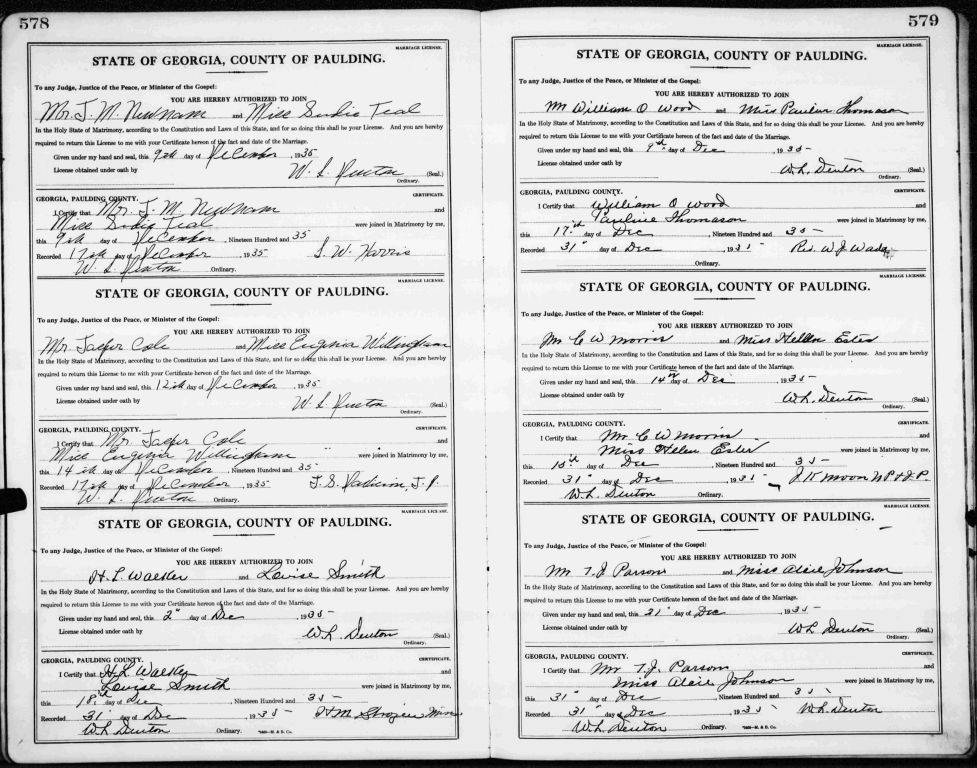 578
MARRIAGE LICENSE.
STATE OF GEORGIA, COUNTY OF PAULDING.
To any Judge, Justice of the Peace, or Minister of the Gospel:
YOU ARE HEREBY AUTHORIZED TO JOIN
Mr. J. M. Newnam and Miss Sudie Teal
In the Holy State of Matrimony, according to the Constitution and Laws of this State, and for so doing this shall be your License. And you are hereby
required to return this License to me with your Certificate hereon of the fact and date of the Marriage.
Given under my hand and seal, this 9th day of December, 1935
License obtained under oath by W. L. Denton (Seal.)
Ordinary.
CERTIFICATE.
GEORGIA, PAULDING COUNTY.
I Certify that Mr. J. M Newnam and
Miss Sudie Teal were joined in Matrimony by me,
this 9th day of December, Nineteen Hundred and 35
Recorded 17th day of December, 1935 S. W. Harris
W. L. Denton Ordinary.
MARRIAGE LICENSE.
STATE OF GEORGIA, COUNTY OF PAULDING.
To any Judge, Justice of the Peace, or Minister of the Gospel:
YOU ARE HEREBY AUTHORIZED TO JOIN
Mr. Jasper Cole and Miss Eugenia Willingham
In the Holy State of Matrimony, according to the Constitution and Laws of this State, and for so doing this shall be your License. And you are hereby
required to return this License to me with your Certificate hereon of the fact and date of the Marriage.
Given under my hand and seal, this 12th day of December, 1935
License obtained under oath by W. L. Denton (Seal.)
Ordinary.
CERTIFICATE.
GEORGIA, PAULDING COUNTY.
I Certify that Mr. Jasper Cole and
Miss Eugenia Willingham were joined in Matrimony by me,
this 14th day of December, Nineteen Hundred and 35
Recorded 17th day of December, 1935 J. S. J. P.
W. L. Denton Ordinary.
MARRIAGE LICENSE.
STATE OF GEORGIA, COUNTY OF PAULDING.
To any Judge, Justice of the Peace, or Minister of the Gospel:
YOU ARE HEREBY AUTHORIZED TO JOIN
H. L. Walker and Louise Smith
In the Holy State of Matrimony, according to the Constitution and Laws of this State, and for so doing this shall be your License. And you are hereby
required to return this License to me with your Certificate hereon of the fact and date of the Marriage.
Given under my hand and seal, this 2" day of Dec, 1935
License obtained under oath by W L Denton (Seal.)
Ordinary.
CERTIFICATE.
GEORGIA, PAULDING COUNTY.
I Certify that H L Walker and
Louise Smith were joined in Matrimony by me,
this 18th day of Dec, Nineteen Hundred and 35
Recorded 31" day of Dec, 1935 H M
W L Denton Ordinary.
579
MARRIAGE LICENSE.
STATE OF GEORGIA, COUNTY OF PAULDING.
To any Judge, Justice of the Peace, or Minister of the Gospel:
YOU ARE HEREBY AUTHORIZED TO JOIN
Mr William O Wood and Miss Pauline Thomason
In the Holy State of Matrimony, according to the Constitution and Laws of this State, and for so doing this shall be your License. And you are hereby
required to return this License to me with your Certificate hereon of the fact and date of the Marriage.
Given under my hand and seal, this 9th day of Dec, 1935
License obtained under oath by W L. Denton (Seal.)
Ordinary.
CERTIFICATE.
GEORGIA, PAULDING COUNTY.
I Certify that William O Wood and
Pauline Thomason were joined in Matrimony by me,
this 17th day of Dec, Nineteen Hundred and 35
Recorded 31" day of Dec, 1935 Rev. W J Wade
Ordinary.
MARRIAGE LICENSE.
STATE OF GEORGIA, COUNTY OF PAULDING.
To any Judge, Justice of the Peace, or Minister of the Gospel:
YOU ARE HEREBY AUTHORIZED TO JOIN
Mr C W Morris and Miss Hellen Estes
In the Holy State of Matrimony, according to the Constitution and Laws of this State, and for so doing this shall be your License. And you are hereby
required to return this License to me with your Certificate hereon of the fact and date of the Marriage.
Given under my hand and seal, this 14th day of Dec, 1935
License obtained under oath by W. L. Denton (Seal.)
Ordinary.
CERTIFICATE.
GEORGIA, PAULDING COUNTY.
I Certify that Mr C W Morris and
Miss Helen Estes were joined in Matrimony by me,
this 15th day of Dec, Nineteen Hundred and 35
Recorded 31" day of Dec, 1935 Moon N P & J. P.
W L. Denton Ordinary.
MARRIAGE LICENSE.
STATE OF GEORGIA, COUNTY OF PAULDING.
To any Judge, Justice of the Peace, or Minister of the Gospel:
YOU ARE HEREBY AUTHORIZED TO JOIN
Mr T. J Parson and Miss Alcie Johnson
In the Holy State of Matrimony, according to the Constitution and Laws of this State, and for so doing this shall be your License. And you are hereby
required to return this License to me with your Certificate hereon of the fact and date of the Marriage.
Given under my hand and seal, this 31" day of Dec, 1935
License obtained under oath by W L Denton (Seal.)
Ordinary.
CERTIFICATE.
GEORGIA, PAULDING COUNTY.
I Certify that Mr T. J. Parson and
Miss Alcie Johnson were joined in Matrimony by me,
this 31" day of Dec, Nineteen Hundred and 35
Recorded 31" day of Dec, 1935 W L Denton
W. L. Denton Ordinary.